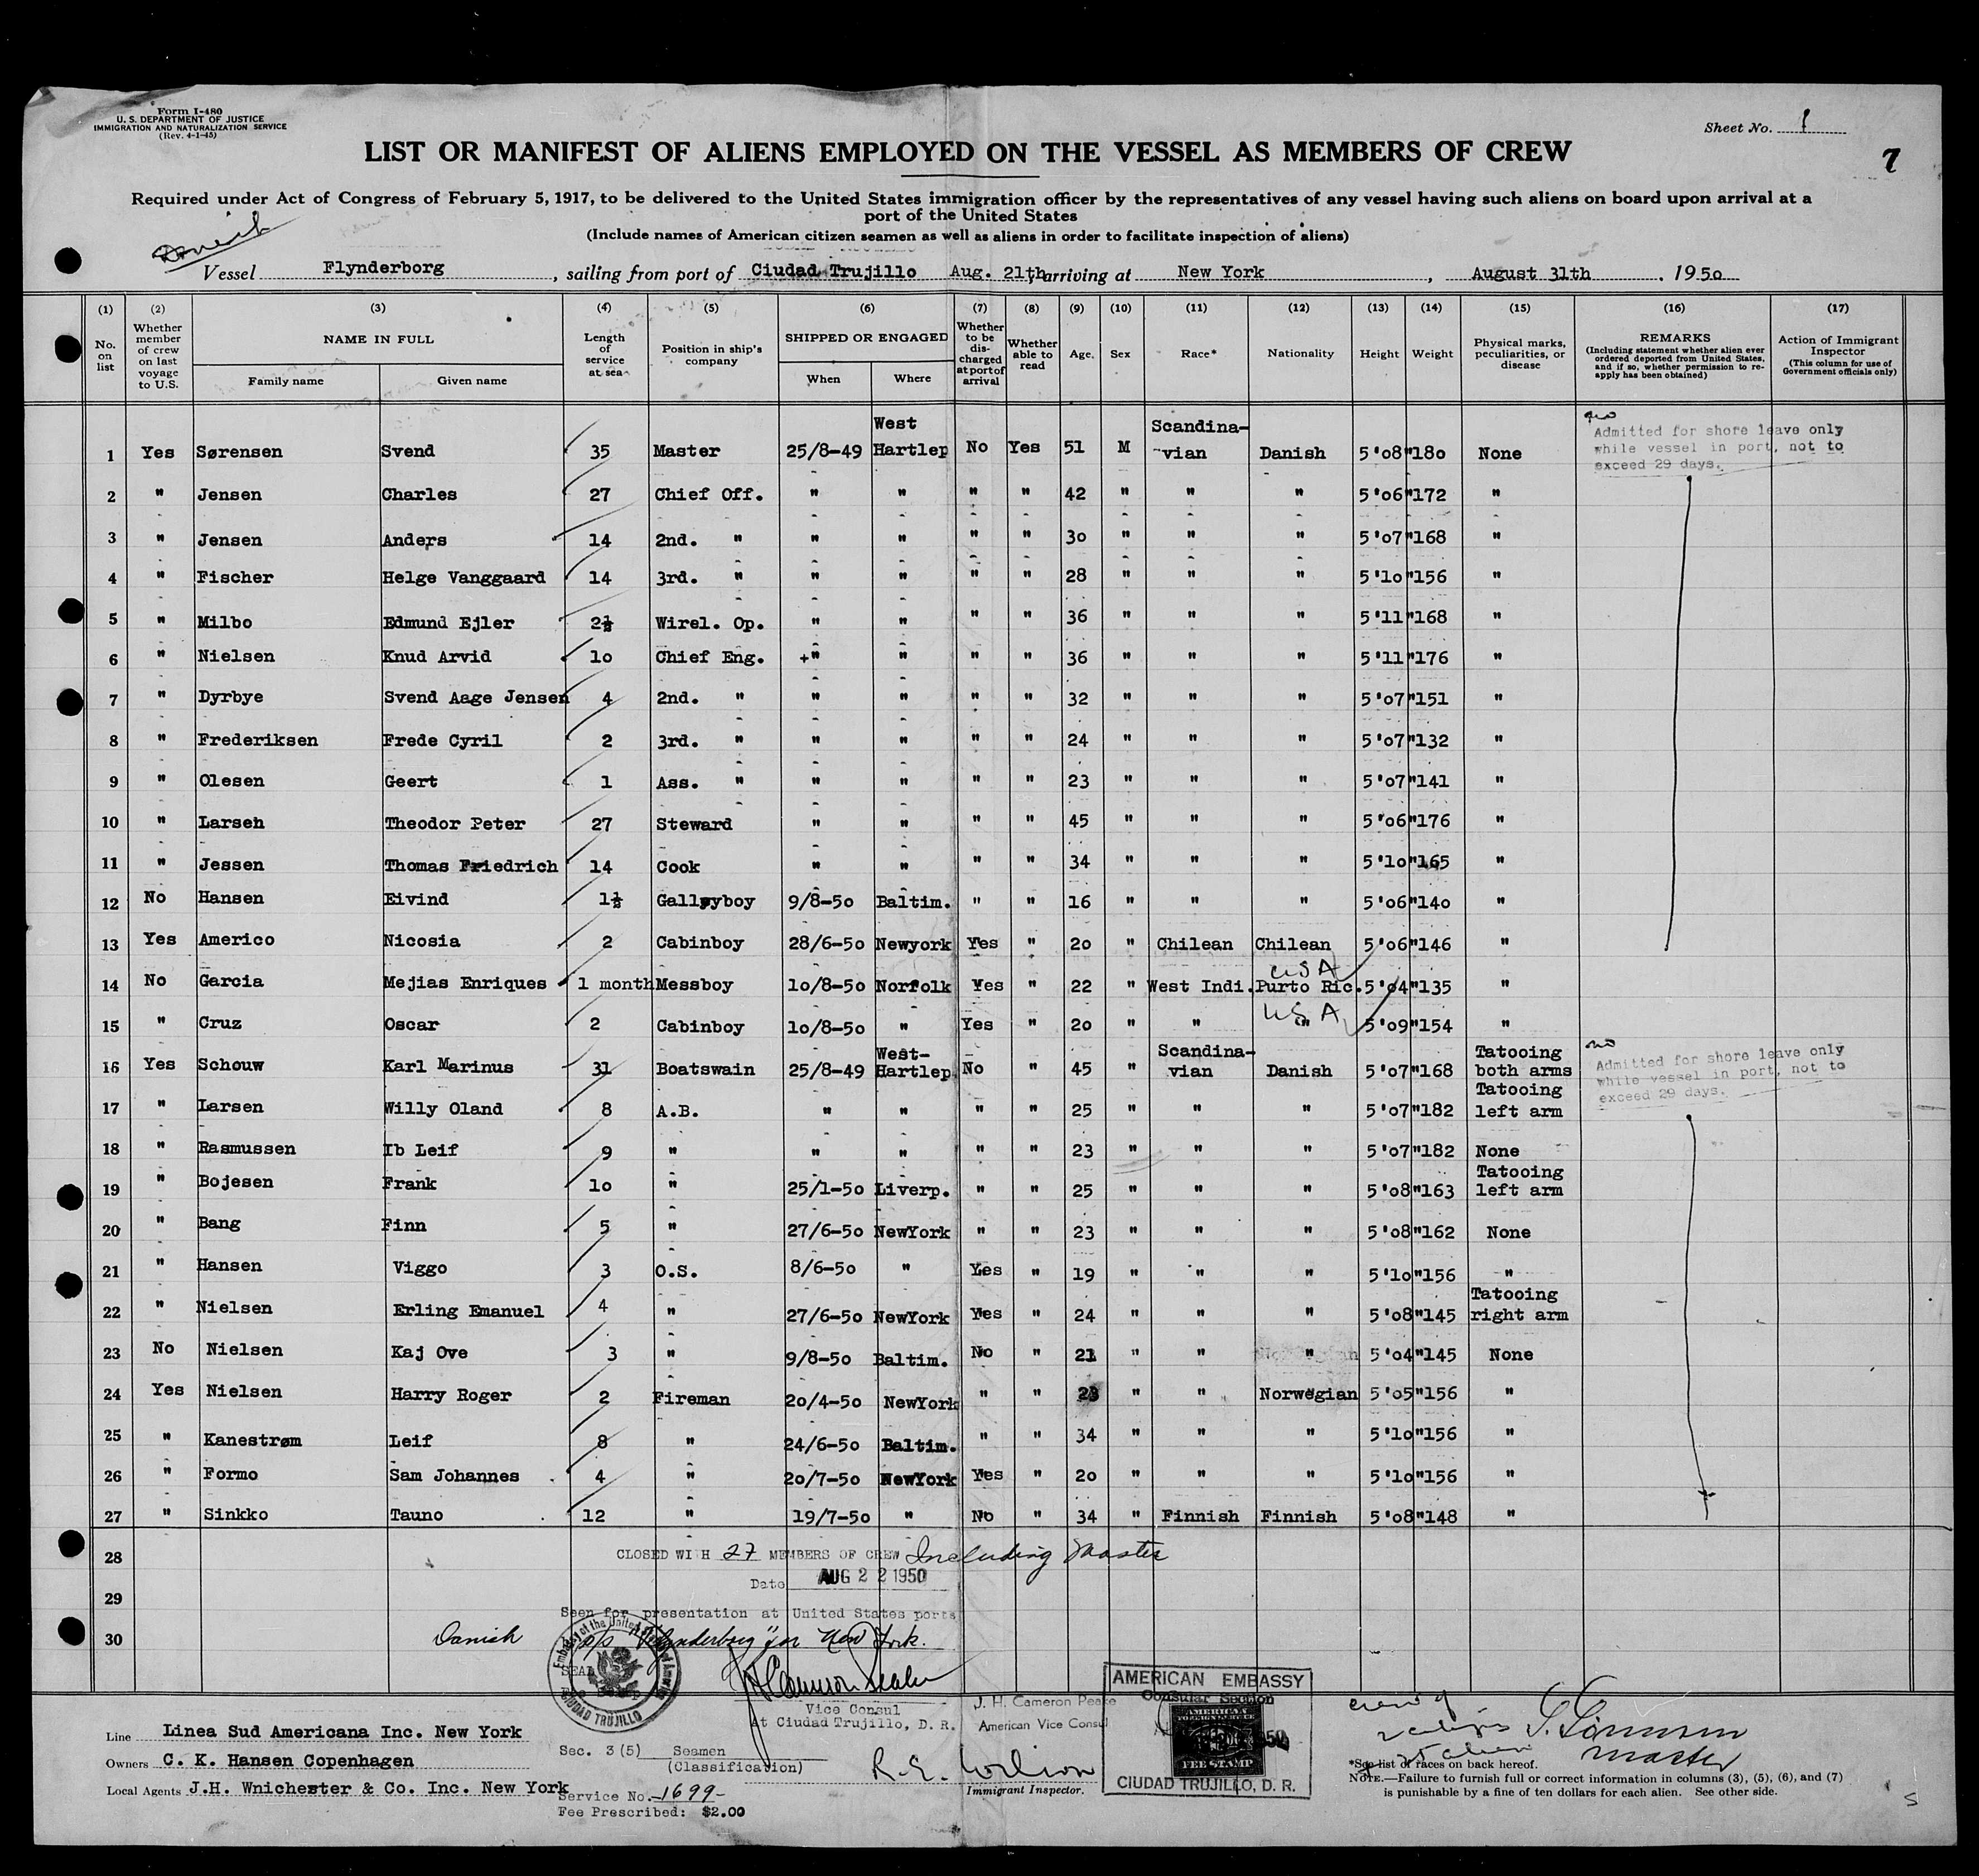 Form I-480
U. S. DEPARTMENT OF JUSTICE
IMMIGRATION AND NATURALIZATION SERVICE
(Rev. 4-1-45)
Sheet No. 1
7
LIST OR MANIFEST OF ALIENS EMPLOYED ON THE VESSEL AS MEMBERS OF CREW
Required under Act of Congress of February 5, 1917, to be delivered to the United States immigration officer by the representatives of any vessel having such aliens on board upon arrival at a
port of the United States
(Include names of American citizen seamen as well as aliens in order to facilitate inspection of aliens)
Danish
Vessel Flynderborg, sailing from port of Ciudad Trujillo Aug. 21th, arriving at New York, August 31th, 1950
(1) (2) (3) (4) (5) (6) (7) (8) (9) (10) (11) (12) (13) (14) (15) (16) (17)
No. on list | Whether member of crew on last voyage to U.S. | NAME IN FULL Family name Given name | Length of service at sea | Position in ship's company | SHIPPED OR ENGAGED When Where | Whether to be discharged at port of arrival | Whether able to read | Age. | Sex | Race* | Nationality | Height | Weight | Physical marks, peculiarities, or disease | REMARKS (Including statement whether alien ever ordered deported from United States, and if so, whether permission to re-apply has been obtained) | Action of Immigrant Inspector (This column for use of Government officials only)
1 Yes Sørensen Svend 35 Master 25/8-49 West Hartlep No Yes 51 M Scandina-vian Danish 5'08" 180 None Admitted for shore leave only while vessel in port, not to exceed 29 days.
2 " Jensen Charles 27 Chief Off. " " " " 42 " " " 5'06" 172 "
3 " Jensen Anders 14 2nd. " " " " " 30 " " " 5'07" 168 "
4 " Fischer Helge Vanggaard 14 3rd. " " " " " 28 " " " 5'10" 156 "
5 " Milbo Edmund Ejler 2½ Wirel. Op. " " " " 36 " " " 5'11" 168 "
6 " Nielsen Knud Arvid 10 Chief Eng. +" " " " 36 " " " 5'11" 176 "
7 " Dyrbye Svend Aage Jensen 4 2nd. " " " " " 32 " " " 5'07" 151 "
8 " Frederiksen Frede Cyril 2 3rd. " " " " " 24 " " " 5'07" 132 "
9 " Olesen Geert 1 Ass. " " " " " 23 " " " 5'07" 141 "
10 " Larsen Theodor Peter 27 Steward " " " " 45 " " " 5'06" 176 "
11 " Jessen Thomas Friedrich 14 Cook " " " " 34 " " " 5'10" 165 "
12 No Hansen Eivind 1½ Galleyboy 9/8-50 Baltim. " " 16 " " " 5'06" 140 "
13 Yes Americo Nicosia 2 Cabinboy 28/6-50 Newyork Yes " 20 " Chilean Chilean 5'06" 146 "
14 No Garcia Mejias Enriques 1 month Messboy 10/8-50 Norfolk Yes " 22 " West Indi. USA Purto Ric. 5'04" 135 "
15 " Cruz Oscar 2 Cabinboy 10/8-50 " Yes " 20 " " USA " 5'09" 154 "
16 Yes Schouw Karl Marinus 31 Boatswain 25/8-49 West-Hartlep No " 45 " Scandina-vian Danish 5'07" 168 Tatooing both arms Admitted for shore leave only while vessel in port, not to exceed 29 days.
17 " Larsen Willy Oland 8 A.B. " " " " 25 " " " 5'07" 182 Tatooing left arm
18 " Rasmussen Ib Leif 9 " " " " " 23 " " " 5'07" 182 None
19 " Bojesen Frank 10 " 25/1-50 Liverp. " " 25 " " " 5'08" 163 Tatooing left arm
20 " Bang Finn 5 " 27/6-50 NewYork " " 23 " " " 5'08" 162 None
21 " Hansen Viggo 3 O.S. 8/6-50 " Yes " 19 " " " 5'10" 156 "
22 " Nielsen Erling Emanuel 4 " 27/6-50 NewYork Yes " 24 " " " 5'08" 145 Tatooing right arm
23 No Nielsen Kaj Ove 3 " 9/8-50 Baltim. No " 21 " " " 5'04" 145 None
24 Yes Nielsen Harry Roger 2 Fireman 20/4-50 NewYork " " 23 " " Norwegian 5'05" 156 "
25 " Kanestrøm Leif 8 " 24/6-50 Baltim. " " 34 " " " 5'10" 156 "
26 " Formo Sam Johannes 4 " 20/7-50 NewYork Yes " 20 " " " 5'10" 156 "
27 " Sinkko Tauno 12 " 19/7-50 " No " 34 " Finnish Finnish 5'08" 148 "
28 CLOSED WITH 27 MEMBERS OF CREW Including Master
Date AUG 22 1950
29
Seen for presentation at United States ports
30 Danish s/s "Flynderborg" for New York.
SEAL
Embassy of the United States of America
CIUDAD TRUJILLO
Vice Consul
At Ciudad Trujillo, D. R.
J. H. Cameron Peake
American Vice Consul
AMERICAN EMBASSY
Consular Section
AMERICAN
FOREIGN SERVICE
FEE STAMP
CIUDAD TRUJILLO, D. R.
Line Linea Sud Americana Inc. New York
Owners C. K. Hansen Copenhagen
Local Agents J.H. Wnichester & Co. Inc. New York
Sec. 3(5) Seamen
(Classification)
Service No. 1699-
Fee Prescribed: $2.00
R.E. Wilson
Immigrant Inspector.
S. Sörensen
Master
*See list of races on back hereof.
NOTE.—Failure to furnish full or correct information in columns (3), (5), (6), and (7)
is punishable by a fine of ten dollars for each alien. See other side.